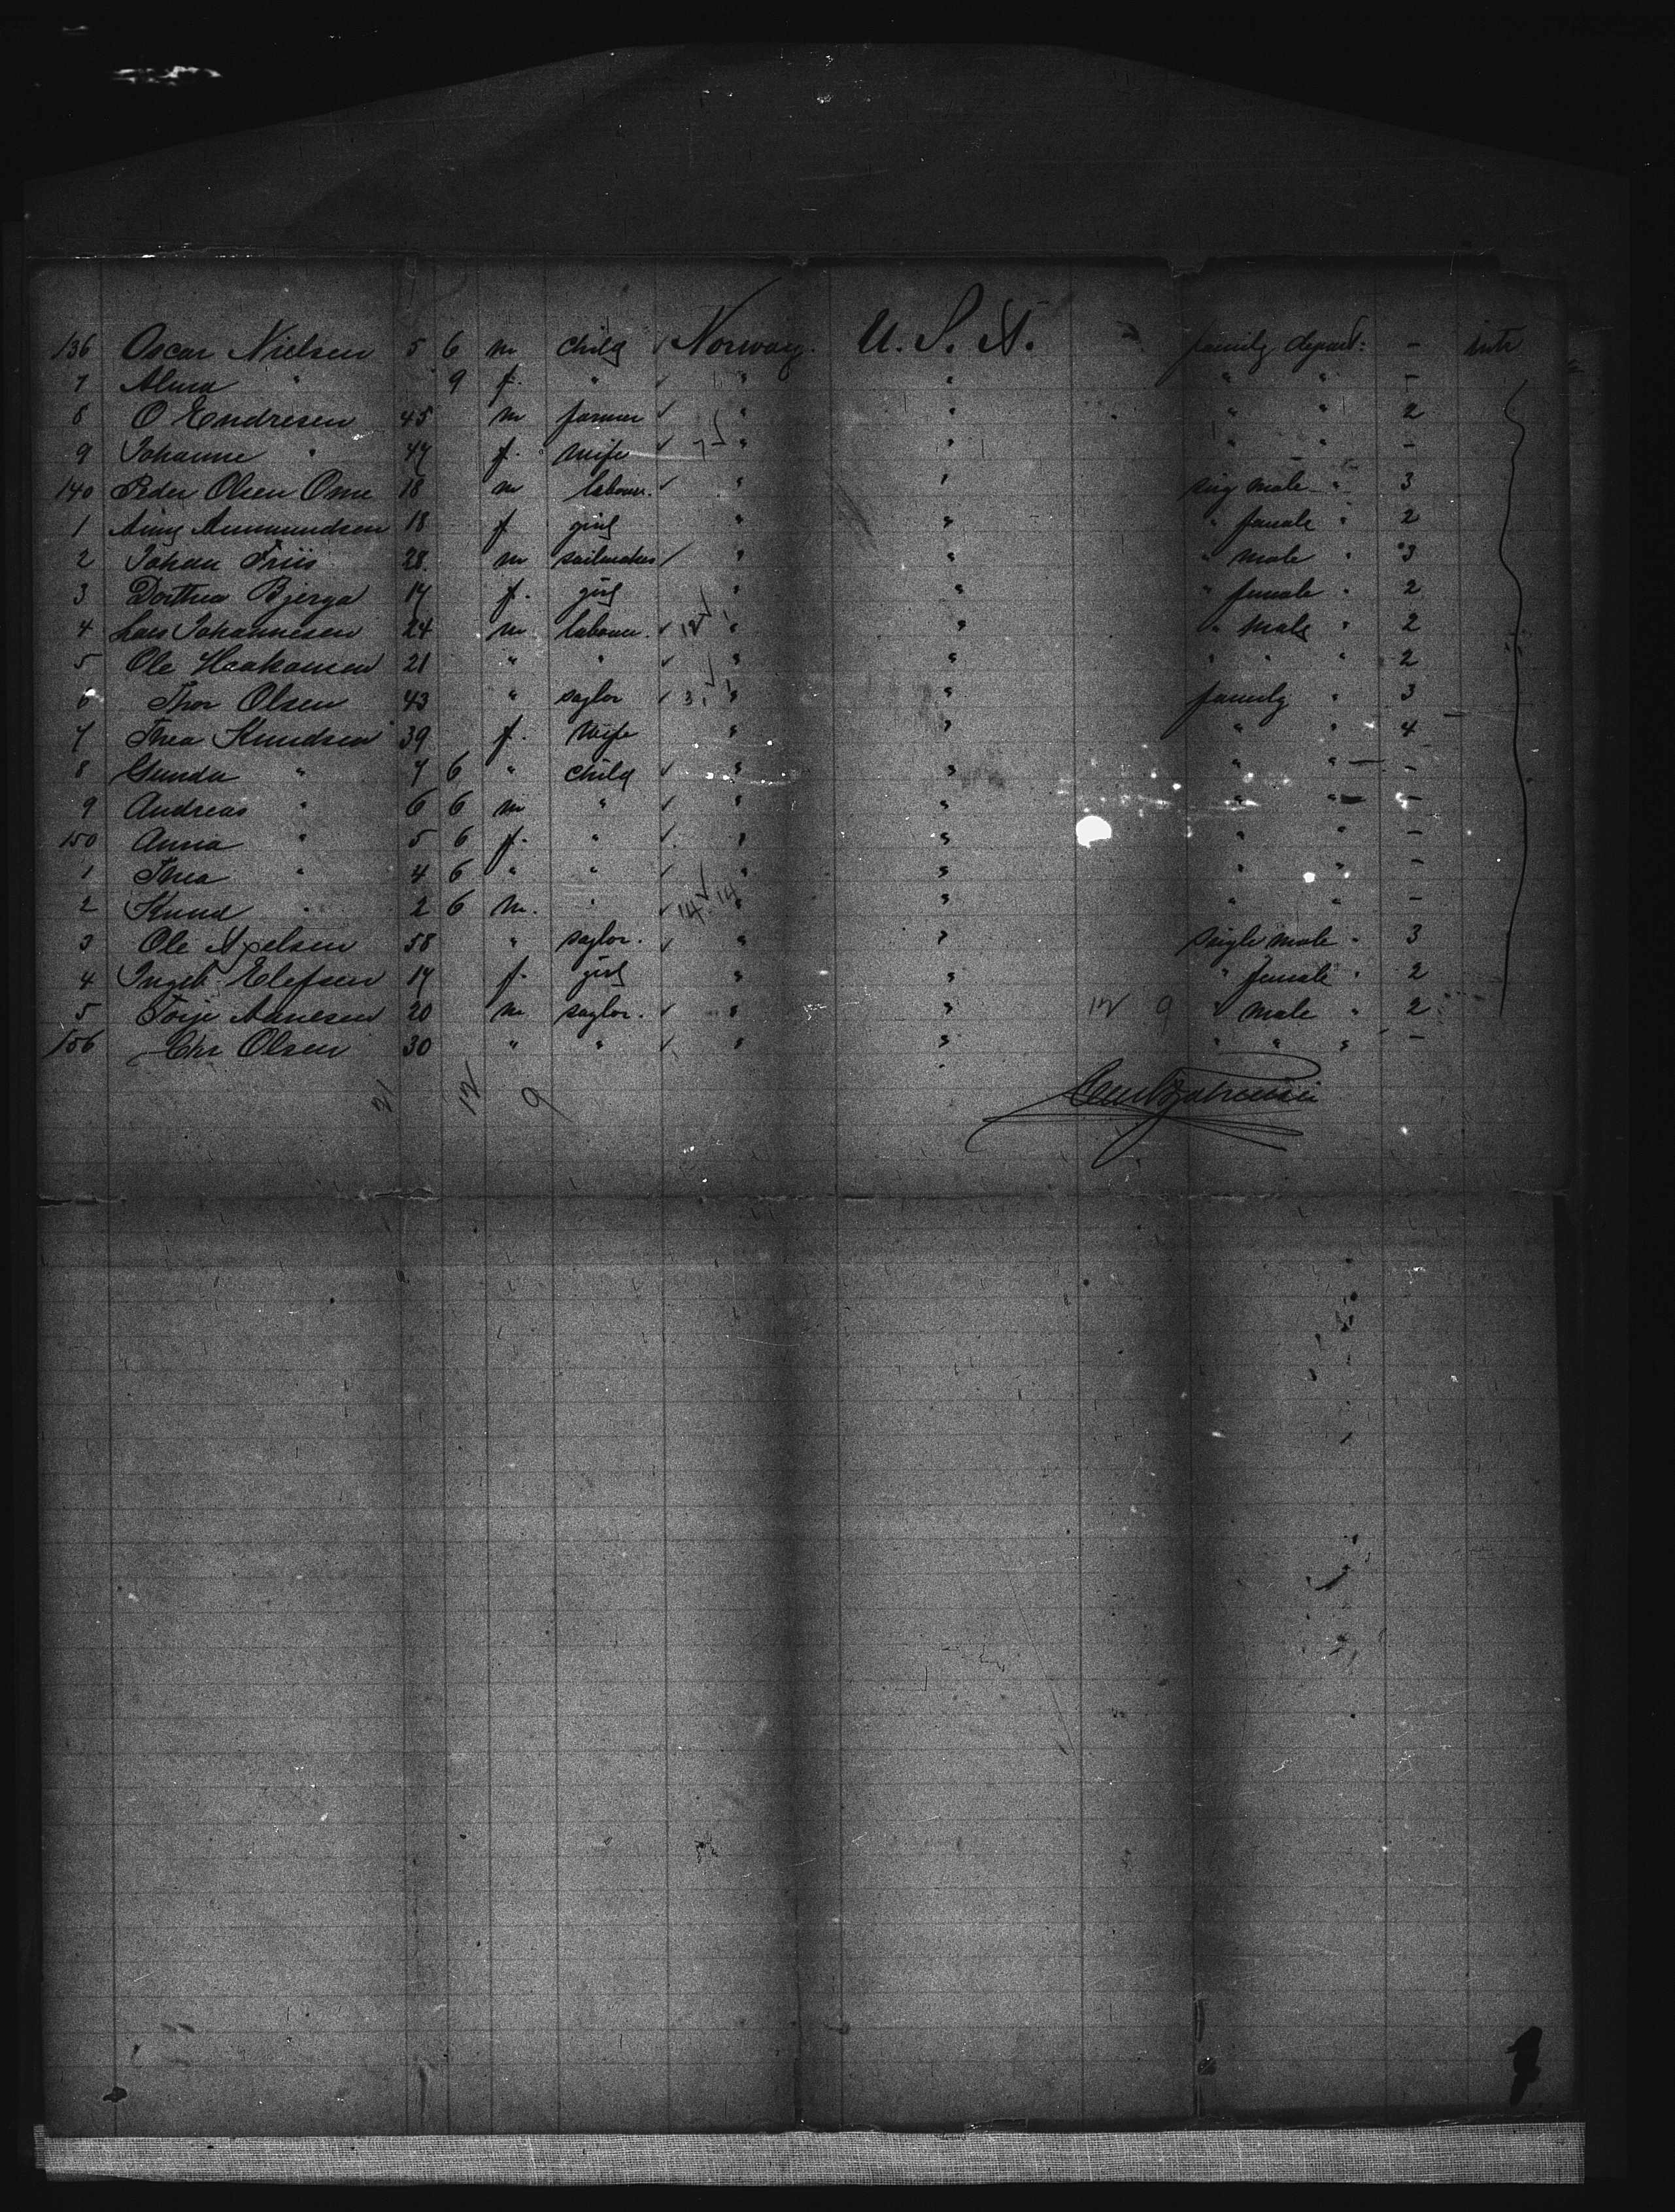 136 Oscar Nielsen 5 6 m child ✓ Norway. U. S. A. family depart: -
7 Alma " 9 f. " ✓ " " " " -
8 O Endresen 45 m farmer ✓ " " " " 2
9 Johanne " 47 f. wife ✓ " " " " -
140 Peder Olsen Ome 18 m labour. " " sing male " 3
1 Amundsen 18 f girl " " " female " 2
2 Johan Friis 28. m sailmaker ✓ " " " male " 3
3 Dorthea Bjerga 17 f. girl " " " female " 2
4 Lars Johannesen 24 m labour. ✓ 12 " " " male " 2
5 Ole Haakonsen 21 " " ✓ " " " " " 2
6 Thor Olsen 43 " saylor ✓ 3 " " family " 3
7 Thea Knudsen 39 f. wife " " " " 4
8 Gunda " 7 6 " child ✓ " " " " -
9 Andreas " 6 6 m " ✓ " " " " -
150 Anna " 5 6 f. " ✓ " " " " -
1 Thea " 4 6 " " ✓ " " " " -
2 Knud " 2 6 m. " ✓ 14 19 " " " " -
3 Ole Axelsen 58 " saylor. ✓ " " single male " 3
4 Ingeb. Elefsen 17 f. girl " " " female " 2
5 Aanesen 20 m saylor. ✓ " " 12 9 " male " 2
156 Chr Olsen 30 " " ✓ " " " " " -
12 9